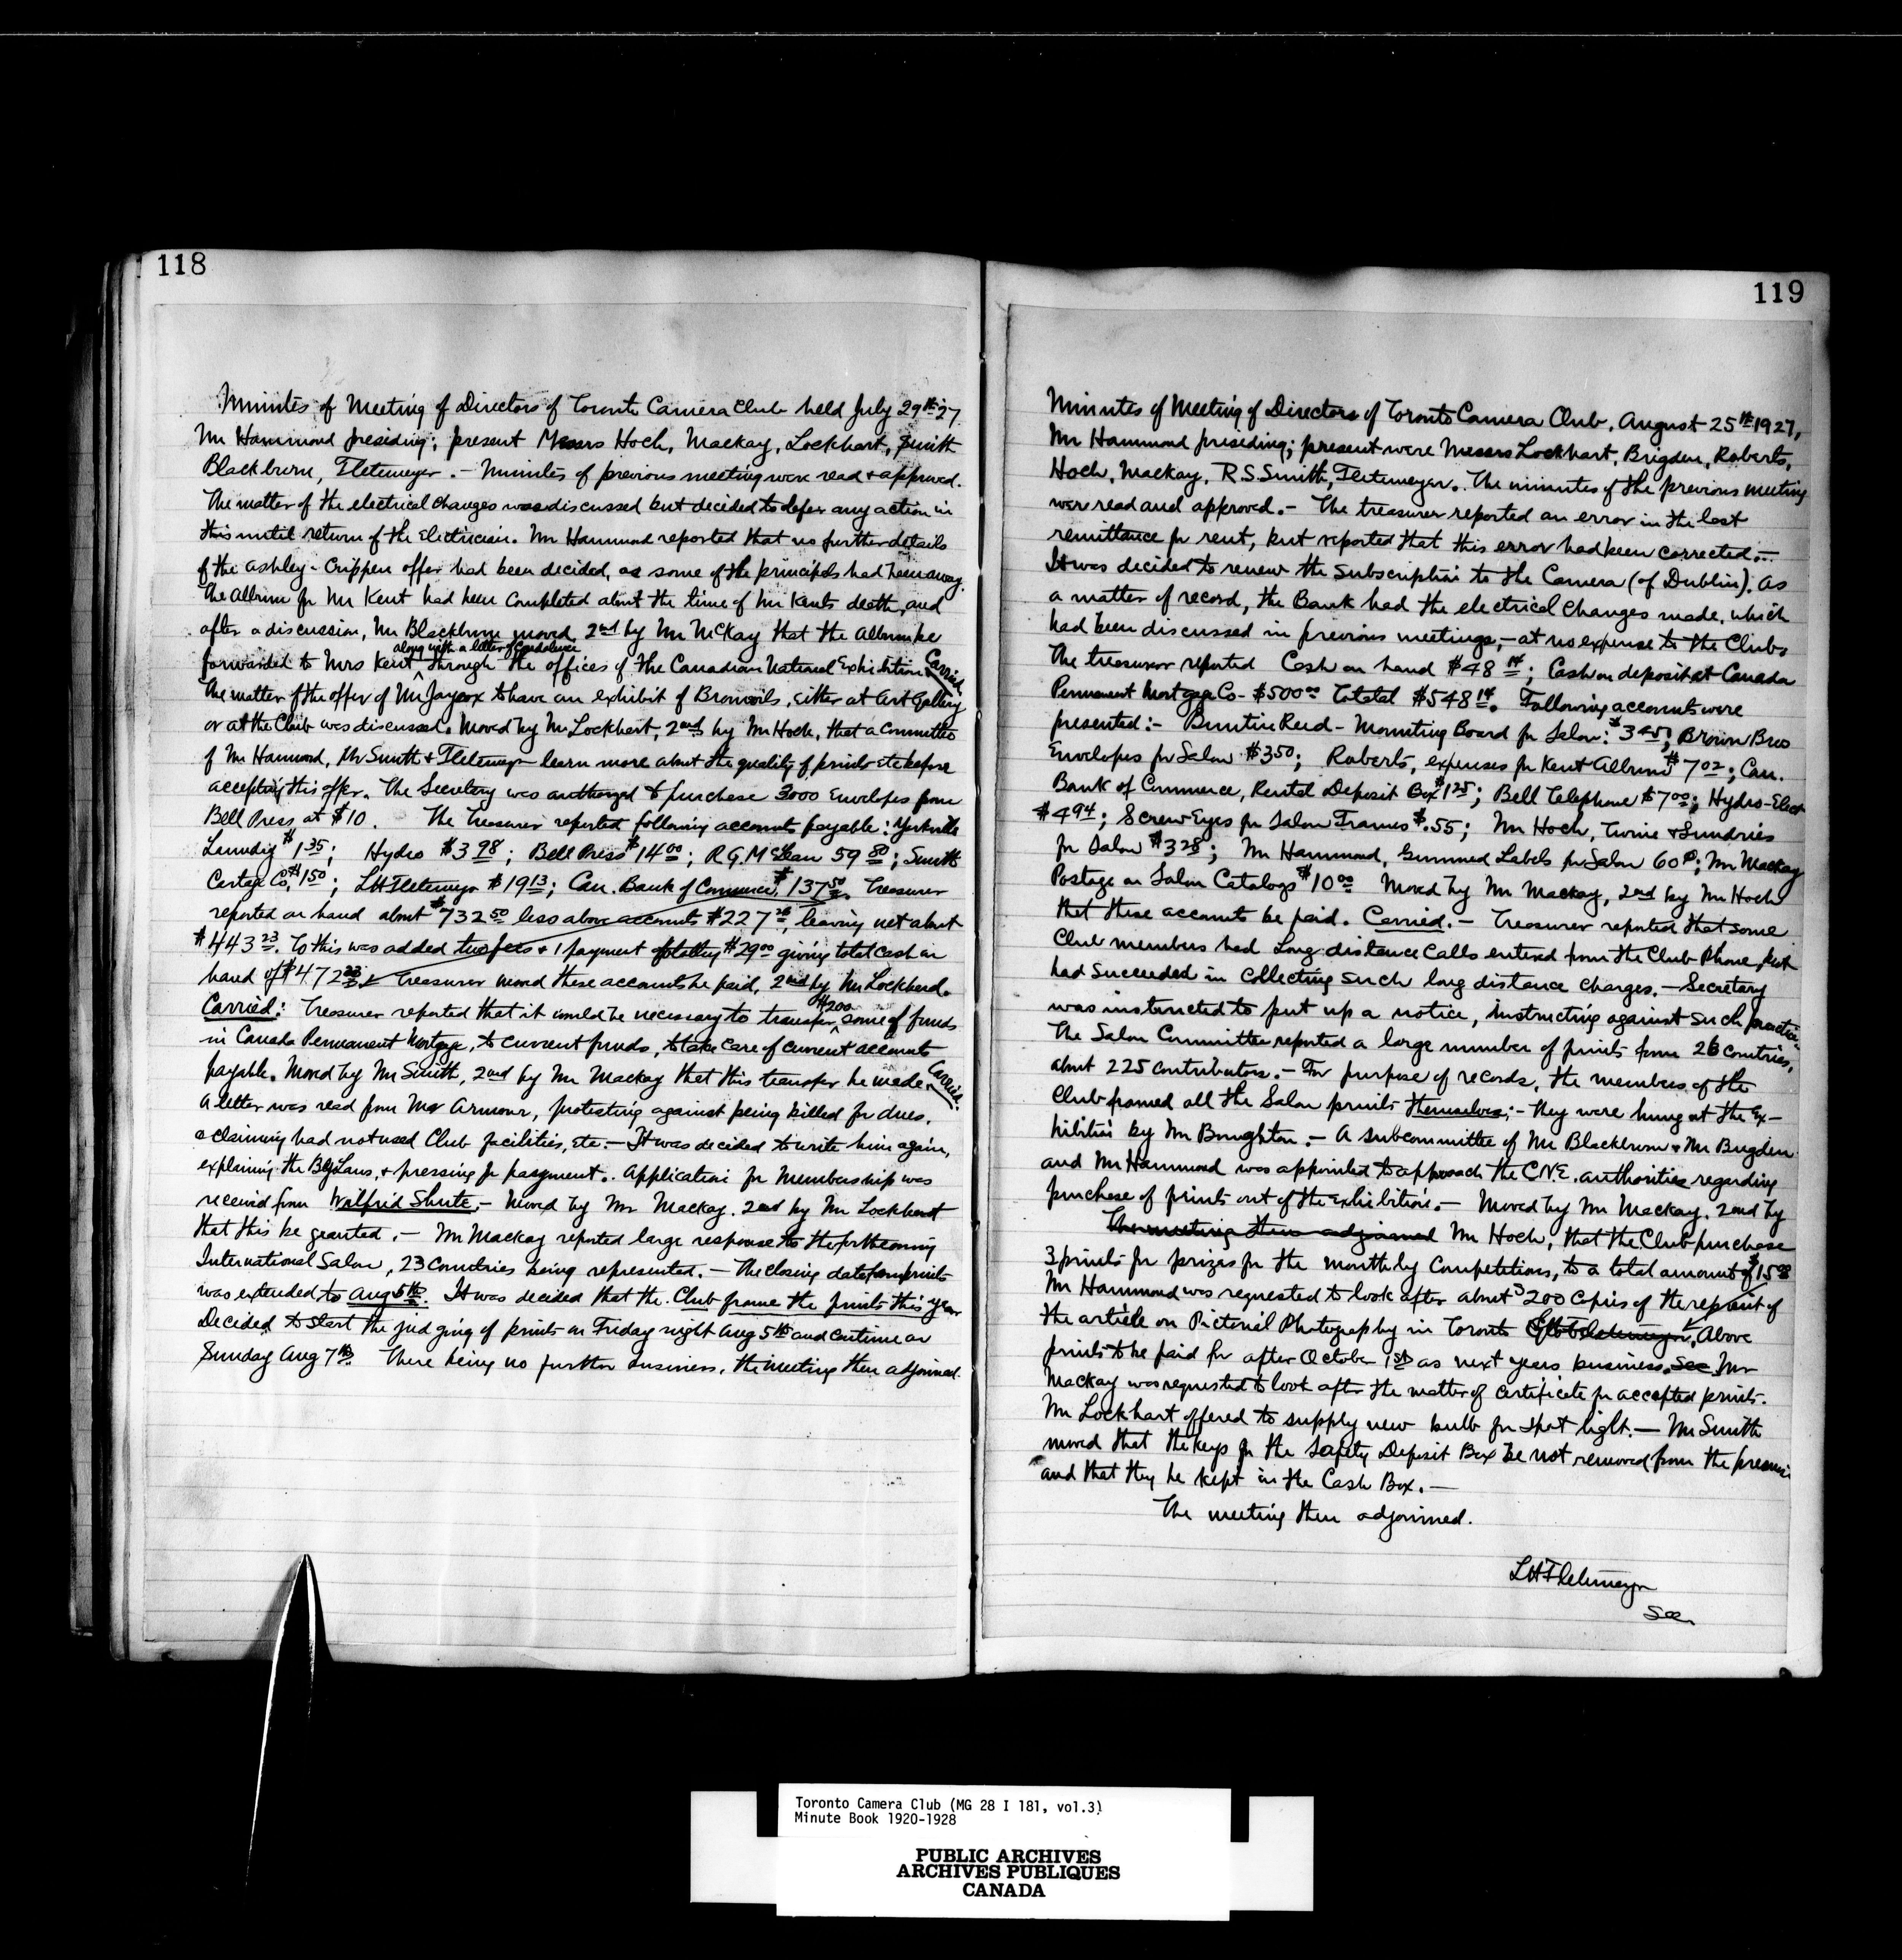 118
Minutes of Meeting of Directors of Toronto Camera Club held July 29th 27
Mr Hammond presiding; present Messrs Hoch, Mackay, Lockhart, Smith
Blackburn, Fletemeyer. - Minutes of previous meeting were read + approved.
The matter of the electrical changes was discussed but decided to defer any action in
this until return of the Electrician. Mr Hammond reported that no further details
of the Ashley-Crippen offer had been decided, as some of the principals had been away.
The Album for Mr Kent had been completed about the time of Mr Kents death, and
after a discussion, Mr Blackburn moved, 2nd by Mr McKay that the Album be
along with a letter of Condolence
forwarded to Mrs Kent through the offices of the Canadian National Exhibition Carried.
The matter of the offer of Mr Jaycox to have an exhibit of Bromoils, either at Art Gallery
or at the Club was discussed. Moved by Mr Lockhart, 2nd by Mr Hoch, that a Committee
of Mr Hammond, Mr Smith + Fletemeyer learn more about the quality of prints etc before
accepting this offer. The Secretary was authorized to purchase 3000 Envelopes from
Bell Press at $10. The Treasurer reported following accounts payable: Yorkville
Laundry $1.35; Hydro $3.98; Bell Press $14.00; R.G. McLean 59.80; Smith
Cartage Co. $1.50; LH Fletemeyer $19.13; Can. Bank of Commerce, $137.50. Treasurer
reported on hand about $732.50 less above accounts $227 , leaving net about
$443.23. To this was added two fees + 1 payment totalling $29.00 giving total cash on
hand of $472.23. Treasurer moved these accounts be paid, 2nd by Mr Lockhard.
$200
Carried: Treasurer reported that it would be necessary to transfer some of funds
in Canada Permanent Mortgage, to current funds, to take care of current accounts
payable. Moved by Mr Smith, 2nd by Mr Mackay that this transfer be made. Carried.
A letter was read from Mr Armour, protesting against being billed for dues,
+ claiming had not used Club facilities, etc. - It was decided to write him again,
explaining the By Laws, + pressing for payment. Application for Membership was
received from Wilfrid Shute. - Moved by Mr Mackay. 2nd by Mr Lockhart
that this be granted. - Mr Mackay reported large response to the forthcoming
International Salon, 23 Countries being represented. - The closing date for prints
was extended to Aug 5th. It was decided that the Club frame the prints this year
Decided to start the judging of prints on Friday night Aug 5th and continue on
Sunday Aug 7th. There being no further business, the meeting then adjourned.
119
Minutes of Meeting of Directors of Toronto Camera Club, August 25th 1927,
Mr Hammond presiding; present were Messrs Lockhart, Brigden, Roberts,
Hoch, Mackay, R.S. Smith, Fletemeyer. The minutes of the previous meeting
were read and approved. - The treasurer reported an error in the last
remittance for rent, but reported that this error had been corrected. -
It was decided to renew the subscription to the Camera (of Dublin). As
a matter of record, the Bank had the electrical changes made, which
had been discussed in previous meetings, - at no expense to the Club.
The treasurer reported Cash on hand $48.14; Cash on deposit at Canada
Permanent Mortgage Co - $500.00 Total $548.14. Following accounts were
presented:- Buntin Reid - Mounting Board for Salon: $3.45; Brown Bros
Envelopes for Salon $3.50; Roberts, expenses for Kent Album $7.02; Can.
Bank of Commerce, Rental Deposit Box $1.25; Bell Telephone $7.00; Hydro-Elect
$4.94; Screw Eyes for Salon Frames $.55; Mr Hoch, Twine + Sundries
for Salon $3.28; Mr Hammond, Gummed Labels for Salon 60¢; Mr Mackay
Postage on Salon Catalogs $10.00 Moved by Mr Mackay, 2nd by Mr Hoch
that these accounts be paid. Carried. - Treasurer reported that some
Club members had Long distance Calls entered from the Club Phone, but
had succeeded in collecting such long distance charges. - Secretary
was instructed to put up a notice, instructing against such practice.
The Salon Committee reported a large number of prints from 26 Countries,
about 225 contributors. - For purpose of records, the members of the
Club framed all the Salon prints themselves; - they were hung at the Ex-
hibition by Mr Boughton. - A subcommittee of Mr Blackburn + Mr Brigden
and Mr Hammond was appointed to approach the C.N.E. authorities regarding
purchase of prints out of the exhibition. - Moved by Mr Mackay. 2nd by
The meeting then adjourned Mr Hoch, that the Club purchase
3 prints for prizes for the monthly Competitions, to a total amount of $15.00
Mr Hammond was requested to look after about 200 Copies of the reprint of
the article on Pictorial Photography in Toronto Above
prints to be paid for after October 1st as next years business. Sec Mr
Mackay was requested to look after the matter of Certificate for accepted prints.
Mr Lockhart offered to supply new bulb for spot light. - Mr Smith
moved that the keys for the Safety Deposit Box be not removed from the premises
and that they be kept in the Cash Box. -
The meeting then adjourned.
LH Fletemeyer
Sec
Toronto Camera Club (MG 28 I 181, vol.3)
Minute Book 1920-1928
PUBLIC ARCHIVES
ARCHIVES PUBLIQUES
CANADA